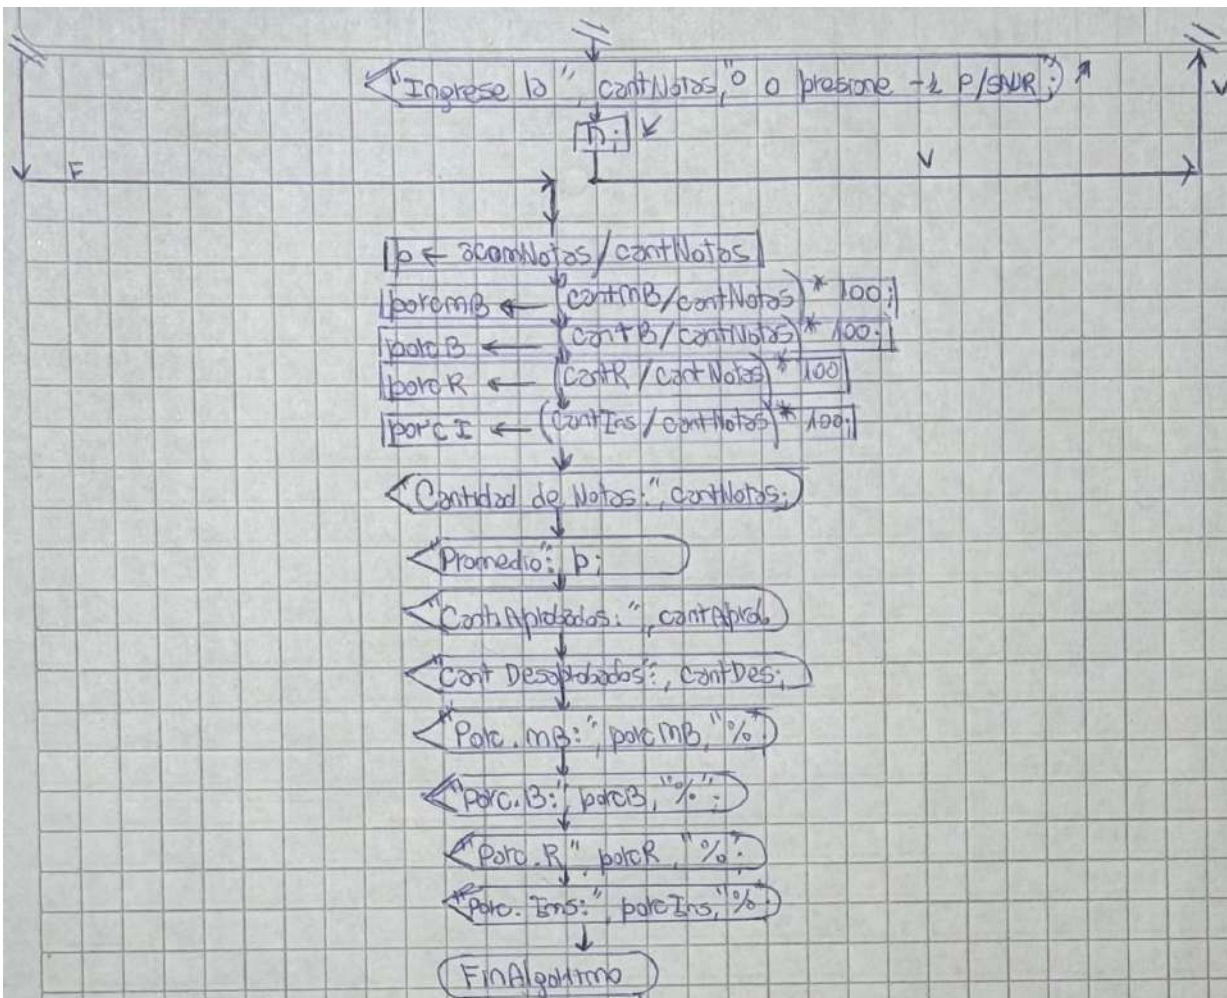 "Ingrese la ", cantNotas, "° o presione -1 P/SALIR";
n;
F
V
V
p ← acomNotas/cantNotas
porcmB ← (cantmB/cantNotas) * 100;
porcB ← (cantB/cantNotas) * 100;
porcR ← (cantR/cantNotas) * 100
porcI ← (cantIns/cantNotas) * 100;
"Cantidad de Notas:", cantNotas;
"Promedio": p;
"Cant.Aprobados:", cantAprob.
"Cant Desaprobados": , cantDes;
"Porc.mB:", porcmB, "%";
"Porc.B:", porcB, "%";
"Porc.R", porcR, "%";
"Porc. Ins:", porcIns, "%"
FinAlgoritmo